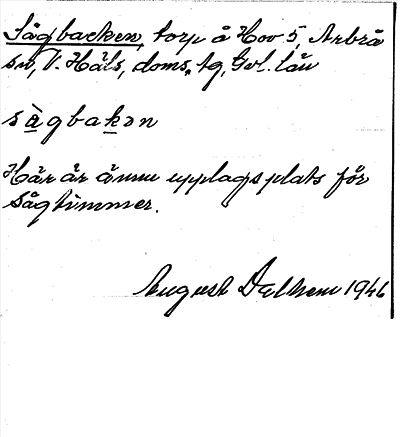 Sågbacken, torp å Hov 5, Arbrå
sn, V. Häls, doms. tg, Gvl. län
sàgbakən
Här är ännu upplagsplats för
sågtimmer.
August Dalhem 1946